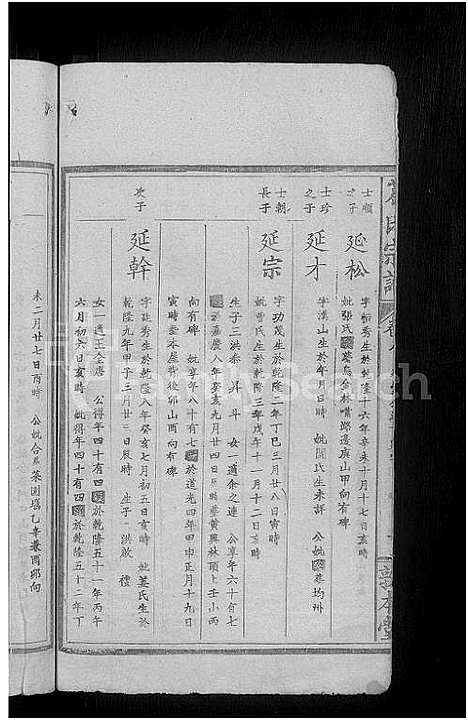 葛氏宗譜
敦本堂
士順
之子
延松
字栢秀生於乾隆十六年辛未十月十七日亥時
妣張氏葬烏金林嘴鄒邊庚山甲向有碑
士珍
之子
延才
字漢山生於年月日時 妣闕氏生未詳 公妣葬均州
士朝
長子
延宗
字功茂生於乾隆二年丁巳三月廿八日寅時
妣曾氏生於乾隆三年戊午十一月十二日亥時
生子三洪泰 昇 斗 女一適余之連 公享年六十有七
於嘉慶八年癸亥九月廿四日辰時葬黄興林頂上壬小丙
向有碑 妣享年八十有七於道光四年甲申正月十九日
寅時葬本屋背後卯山酉向有碑
次子
延幹
字廷秀生於乾隆八年癸亥七月初五日亥時 妣姜氏生於
乾隆九年甲子三月廿三日辰時 生子二洪啟 禮
女一適王全唐 公得年四十有四於乾隆五十一年丙午
六月初六日亥時 妣得年四十有四於乾隆五十二年丁
未二月廿七日酉時 公妣合葬菜園塆乙辛兼酉卯向